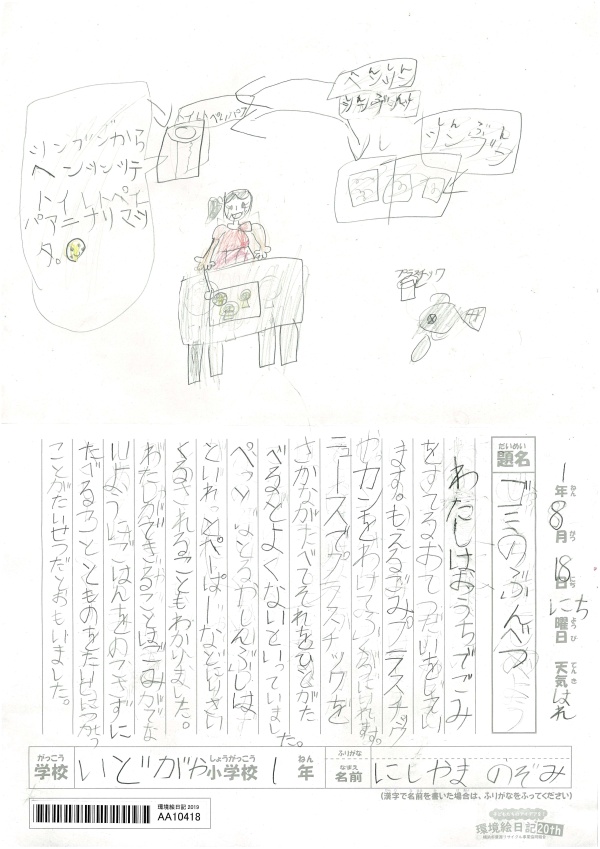 ペンしん
シンブン
しんぶん
シンブン
トイレペパア
シンブンから
ヘンシンシテ
トイレトペイ
パアニナリマシ
タ。
プラスチック
1年8月18日にち曜日 天気はれ
ねん がつ にち ようび てんき
だいめい
題名
ゴミのぶんべつ
わたしはおうちでごみ
をすてるおてつだいをしてい
ます。もえるごみプラスチック
やカンをわけてふくろにいれます。
ニュースでプラスチックを
さかながたべてそれをひとがた
べるとよくないといっていました。
ぺっとぼとるやしんぶんしは
といれっとぺーぱーなどにりさい
くるされることもわかりました。
わたしができることはごみがでな
いようにごはんをのこさずに
たべることとものをたいせつにつかう
ことがたいせつだとおもいました。
がっこう
学校
いどがや
しょうがっこう
小学校
1
ねん
年
ふりがな
なまえ
名前
にしやま のぞみ
(漢字で名前を書いた場合は、ふりがなをふってください)
環境絵日記 2019
AA10418
環境絵日記 20th